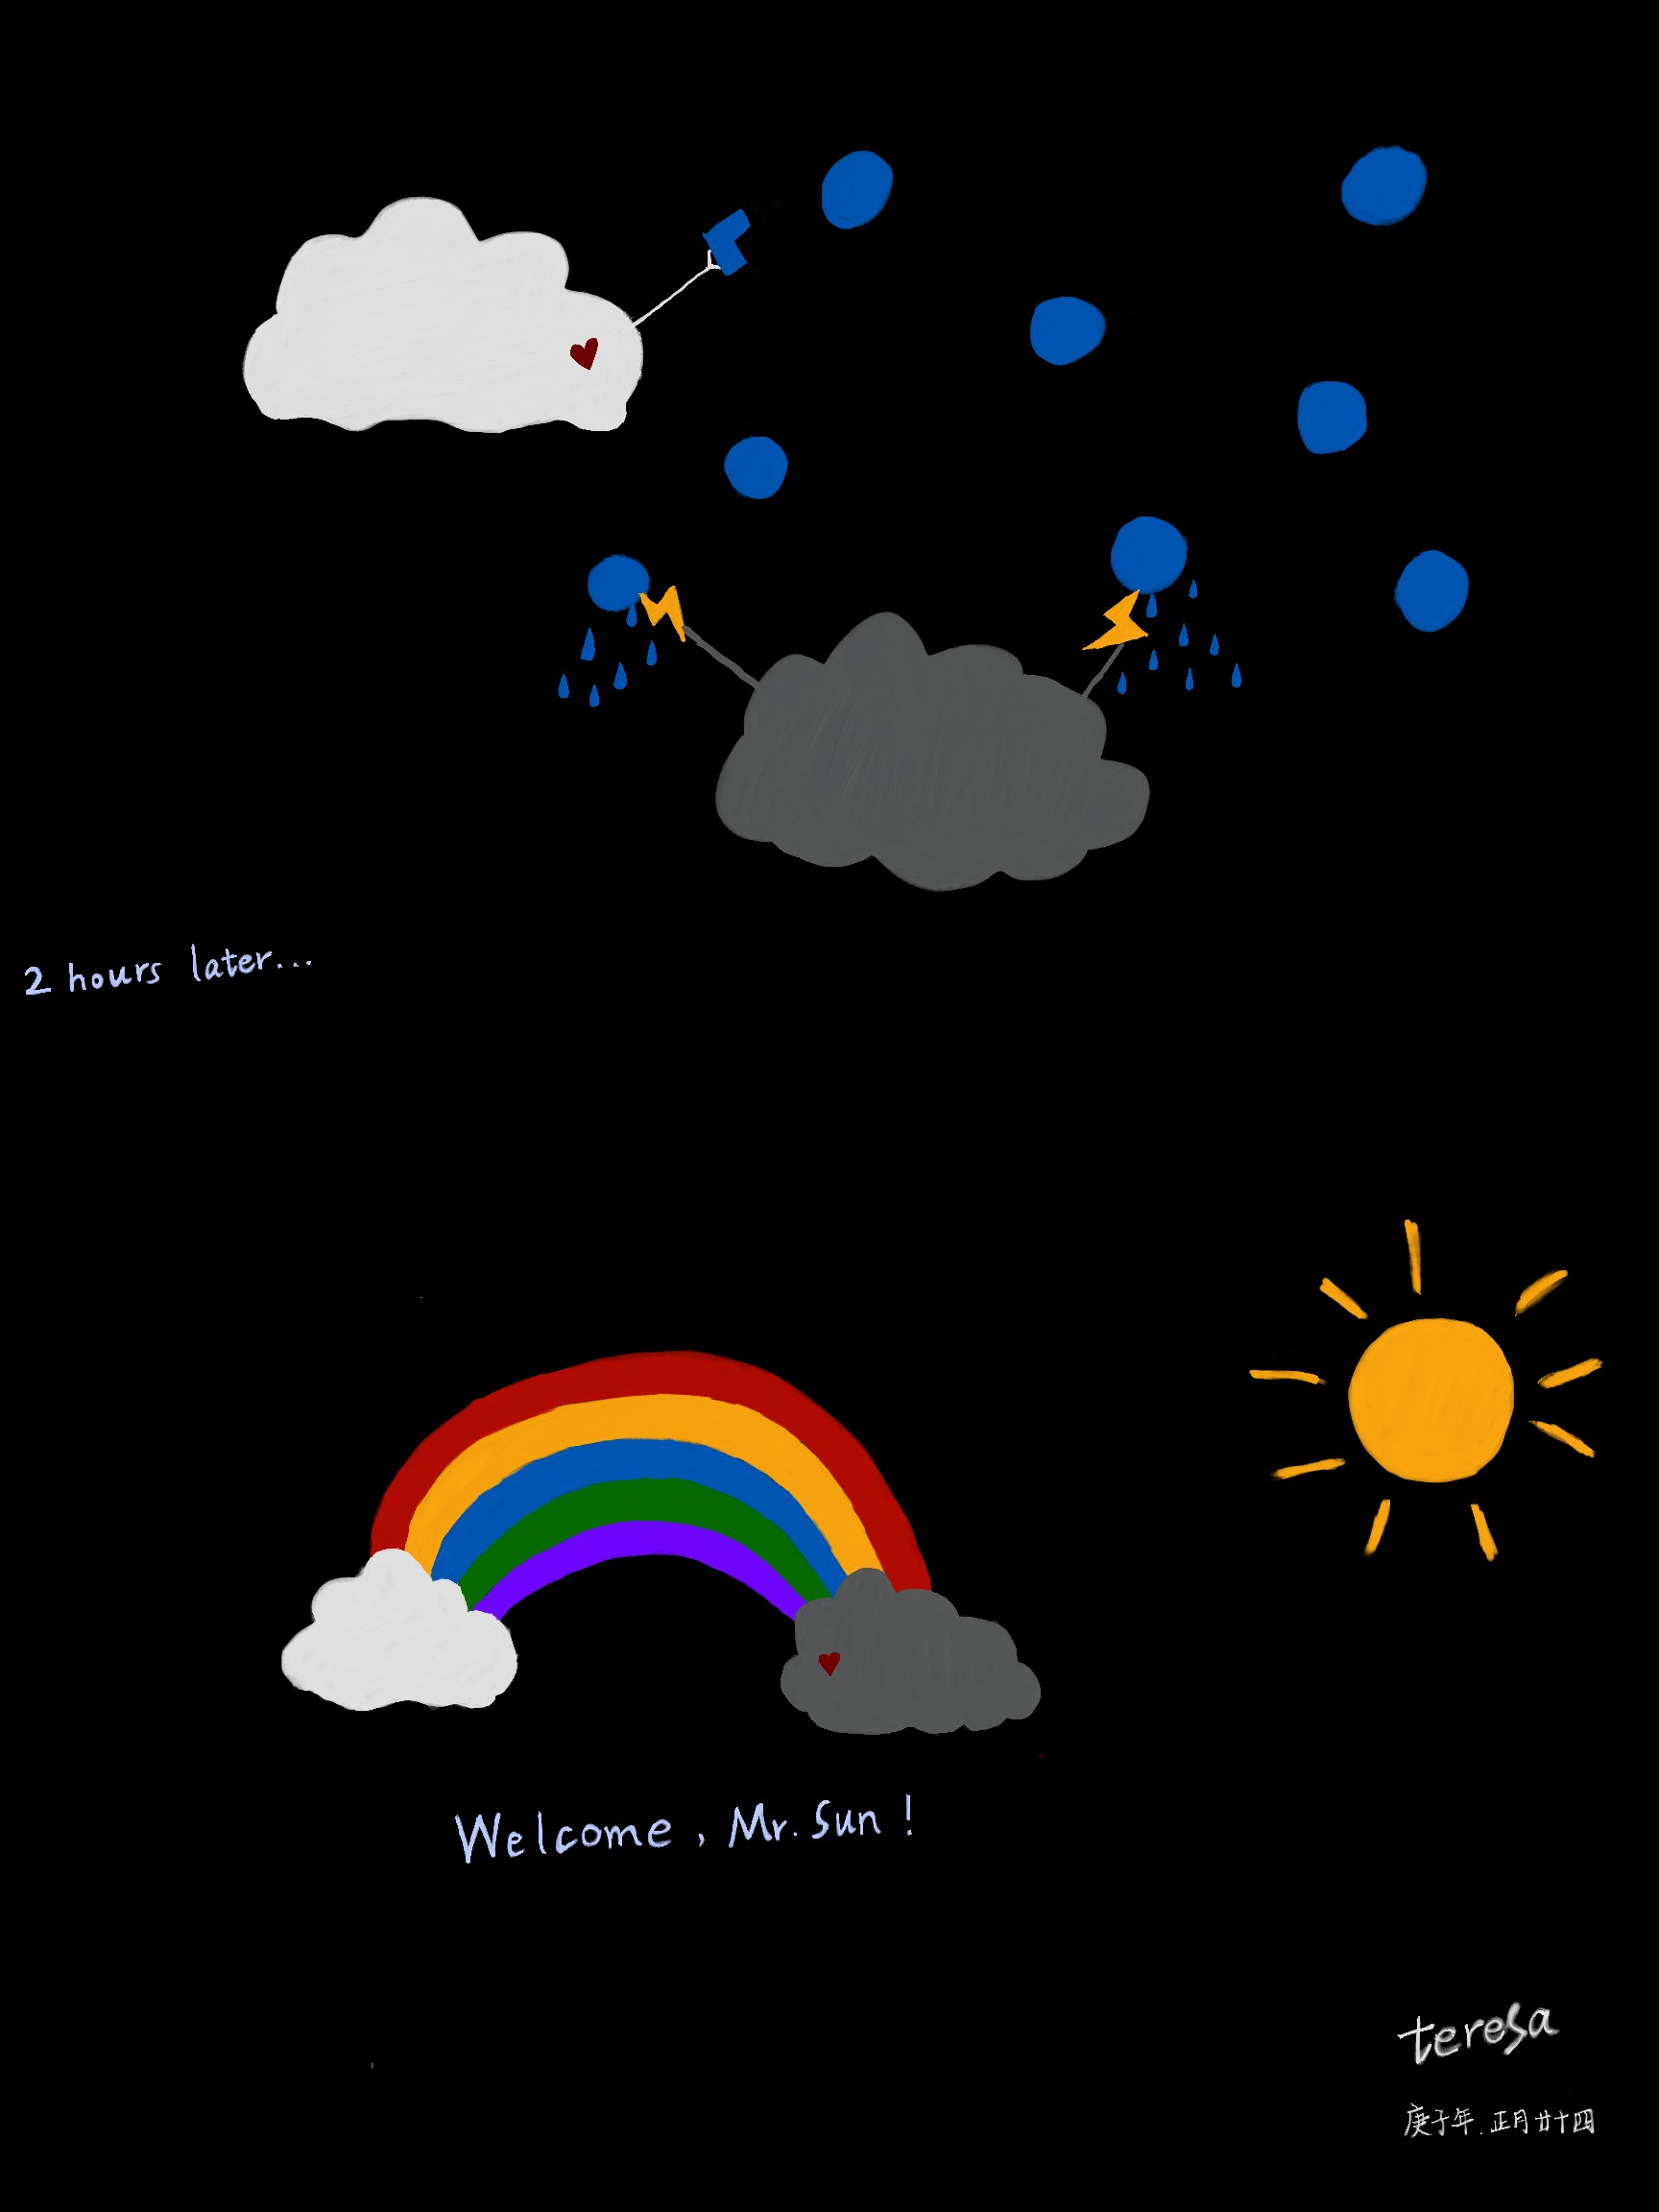 2 hours later...
Welcome, Mr. Sun!
teresa
庚子年.正月廿十四